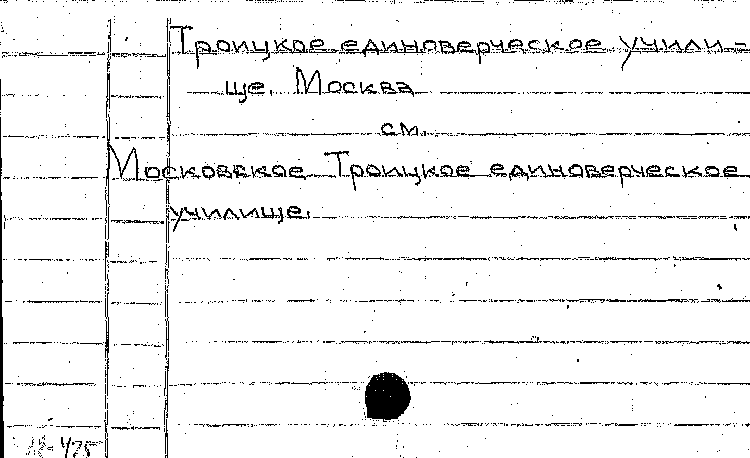 Троицкое единоверческое учили-
ще. Москва
см.
Московское Троицкое единоверческое
училище.